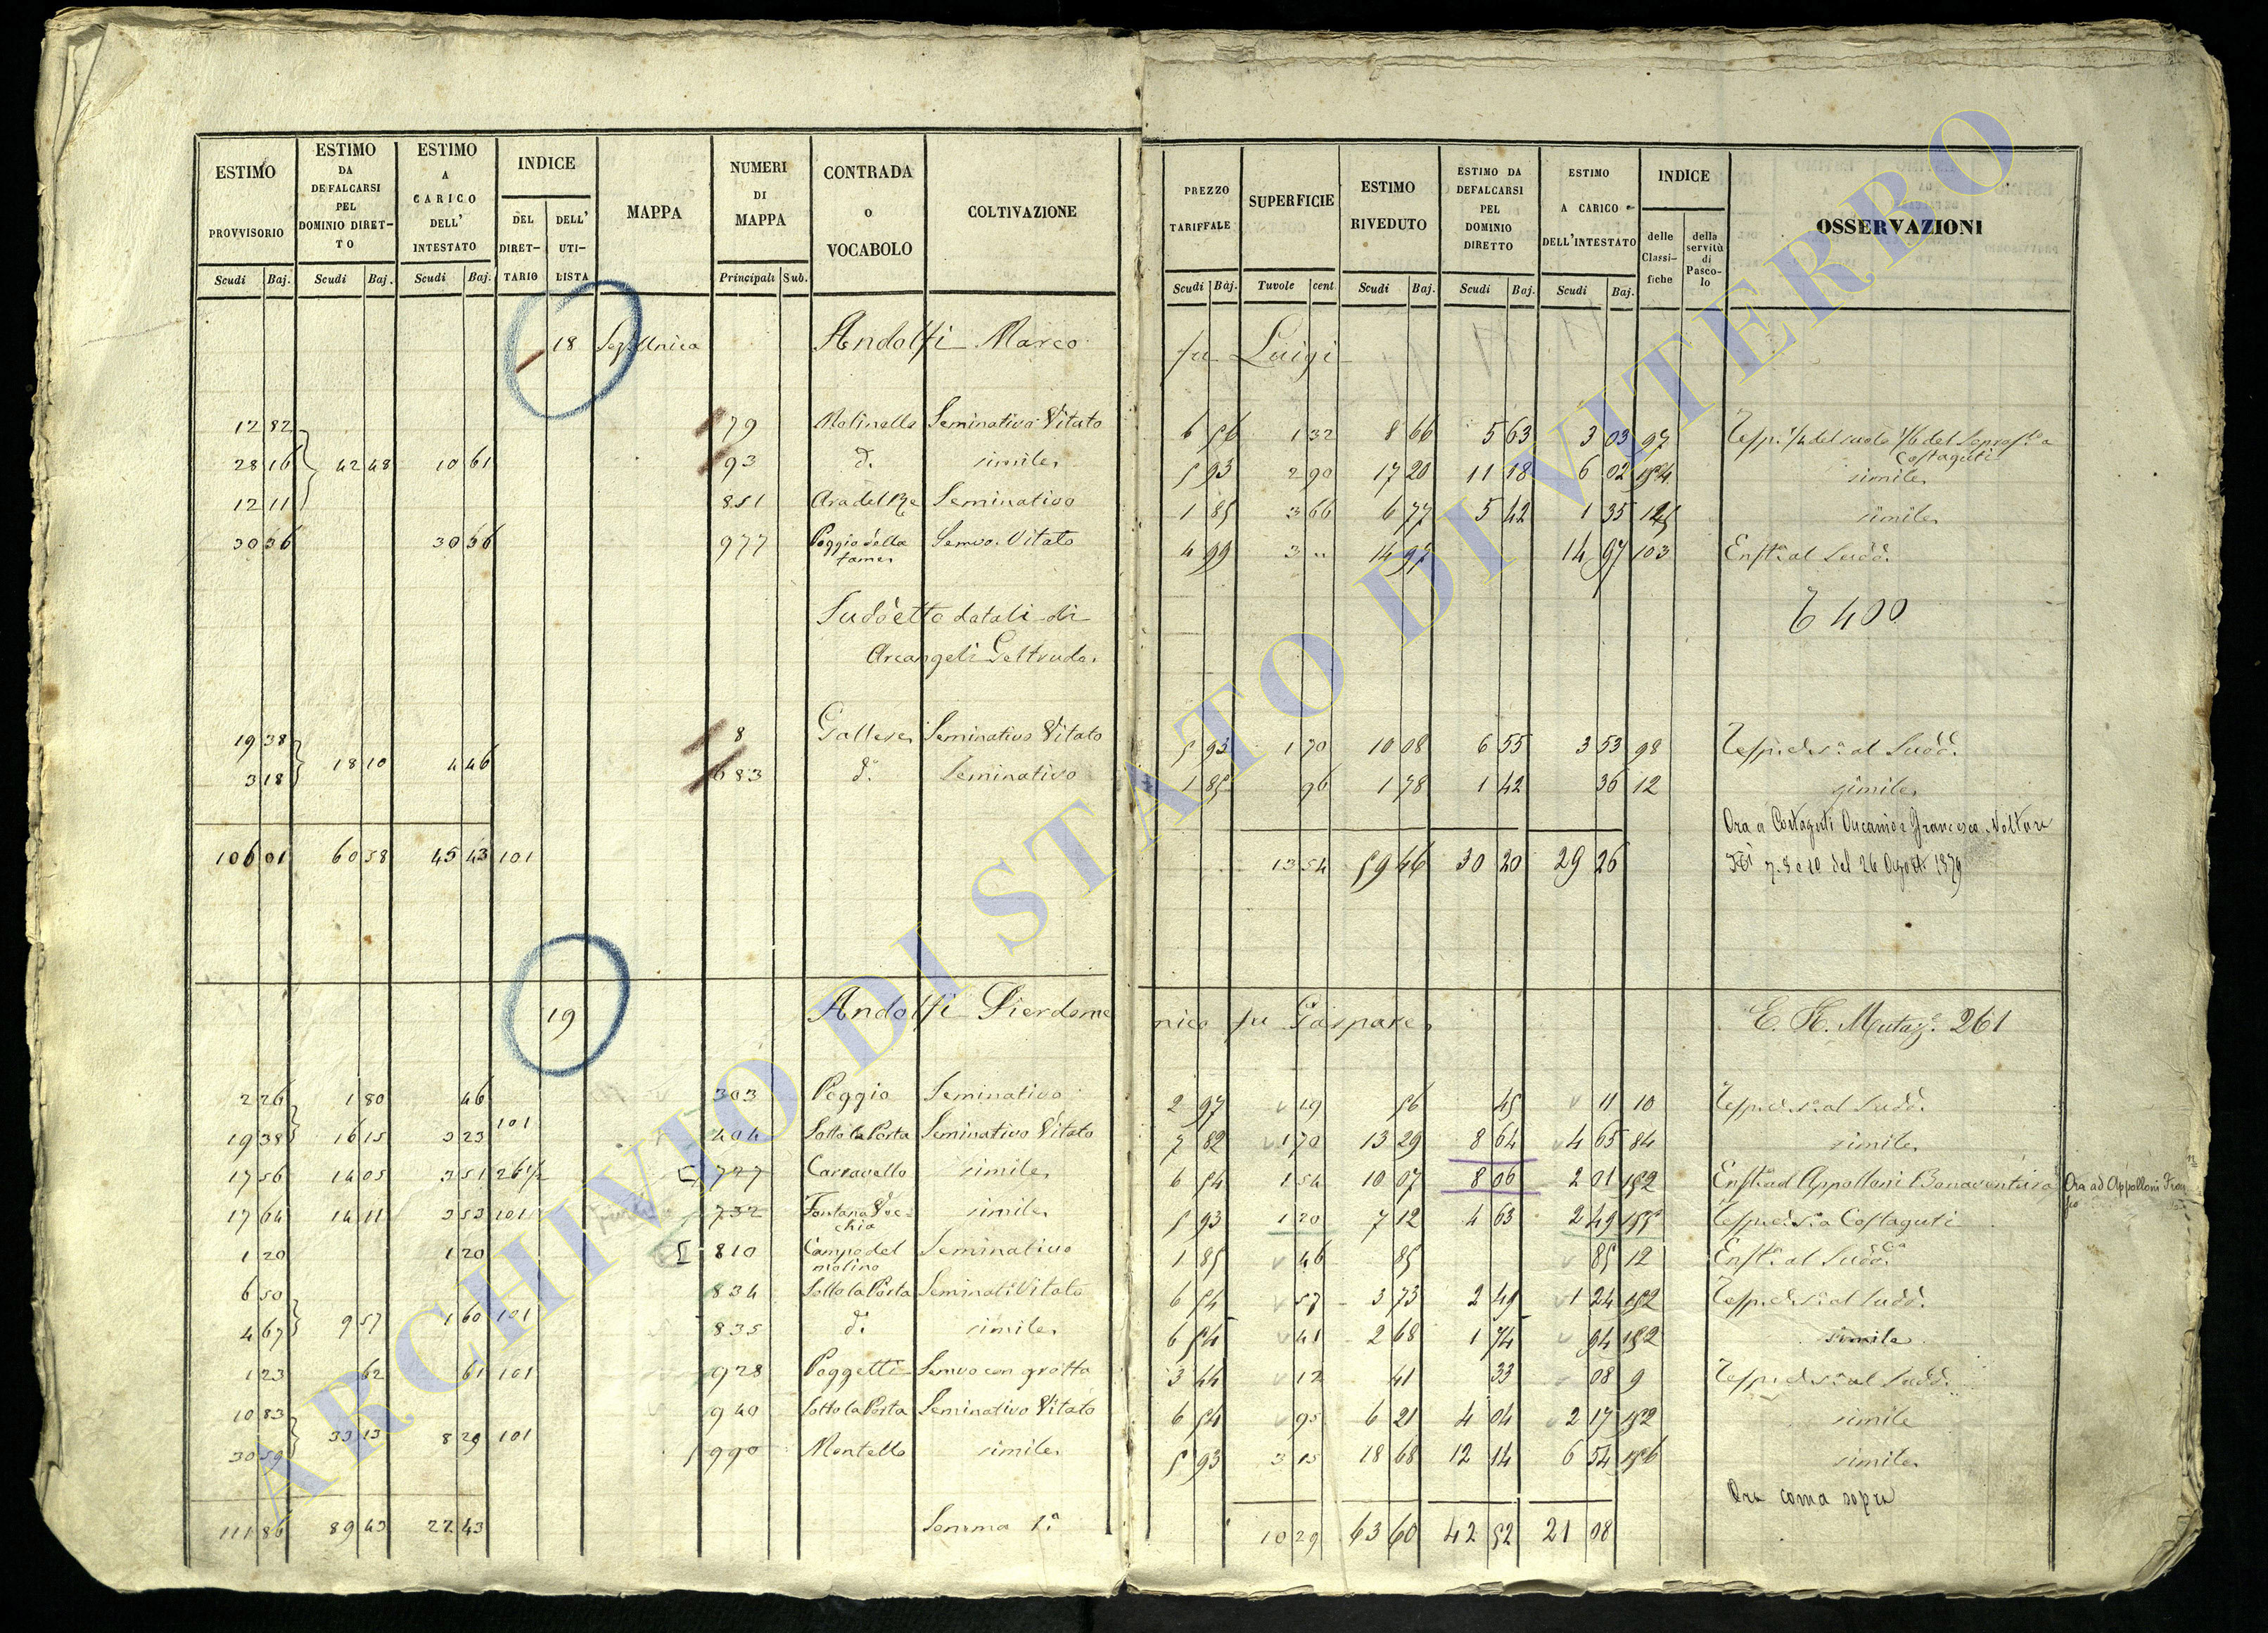 ESTIMO PROVVISORIO
ESTIMO DA DEFALCARSI PEL DOMINIO DIRETTO
ESTIMO A CARICO DELL' INTESTATO
INDICE
DEL DIRETTARIO
DELL' UTILISTA
MAPPA
NUMERI DI MAPPA
CONTRADA O VOCABOLO
COLTIVAZIONE
PREZZO TARIFFALE
SUPERFICIE
ESTIMO RIVEDUTO
ESTIMO DA DEFALCARSI PEL DOMINIO DIRETTO
ESTIMO A CARICO DELL'INTESTATO
INDICE
delle Classifiche
della servitù di Pascolo
OSSERVAZIONI
Scudi Baj. Scudi Baj. Scudi Baj. Principali Sub. Scudi Baj. Tavole cent. Scudi Baj. Scudi Baj. Scudi Baj.
18 Sez. Unica Andolfi Marco fu Luigi
12 82 79 Molinella Seminativo Vitato 6 56 1 32 8 66 5 63 3 03 97
28 16 42 48 10 61 93 d. simile 5 93 2 90 17 20 11 18 6 02 simile
Costaguti
12 11 851 Ara del Re Seminativo 1 85 3 66 6 77 5 42 1 35 simile
30 36 30 36 977 Poggio della fame Semvo. Vitato 4 99 3 .. 14 97 14 97 103 al Sudd.
Suddetto dotali di
Arcangeli Geltrude
400
19 38 8 Gallese Seminativo Vitato 5 93 1 70 10 08 6 55 3 53 98 al Sudd.
3 18 18 10 4 46 683 d. Seminativo 1 85 96 1 78 1 42 36 12 simile
Ora a Costaguti Francesco
7. 8 e 10 del 26 Agosto 1879
106 01 60 58 45 43 101 13 54 59 46 30 20 29 26
19 Andolfi Pierdomenico fu Gaspare 261
2 26 1 80 46 303 Poggio Seminativo 2 97 19 56 45 11 10 al Sudd.
101
19 38 16 15 3 23 404 Sotto la Porta Seminativo Vitato 7 82 1 70 13 29 8 64 4 65 84 simile
17 56 14 05 3 51 26 1/2 727 Carravello simile 6 54 1 54 10 07 8 06 2 01 152 ad Appolloni Bonaventura Ora ad Appolloni
17 64 14 11 3 53 101 732 Fontana Vecchia simile 5 93 1 20 7 12 4 63 2 49 a Costaguti
1 20 1 20 810 Campo del molino Seminativo 1 85 46 85 85 12 al Sudd.
6 50 834 Sotto la Porta Seminati Vitato 6 54 57 3 73 2 49 1 24 152 al Sudd.
4 67 9 57 1 60 101 835 d. simile 6 54 41 2 68 1 74 94 152 simile
1 23 62 61 101 928 Poggetti Semvo con grotta 3 44 12 41 33 08 9 al Sudd.
10 83 940 Sotto la Porta Seminativo Vitato 6 54 95 6 21 4 04 2 17 152 simile
30 59 33 13 8 29 101 990 Montello simile 5 93 3 15 18 68 12 14 6 54 156 simile
Ora come sopra
111 86 89 43 22 43 Somma 1.a 10 29 63 60 42 52 21 08
ARCHIVIO DI STATO DI VITERBO